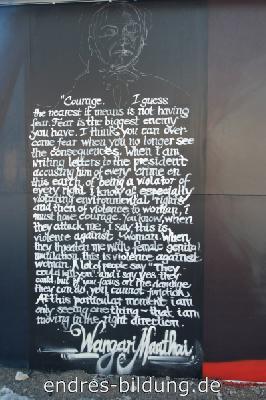 "Courage. I guess
the nearest it means is not having
fear. Fear is the biggest enemy
you have. I think you can over
come fear when you no longer see
the consequences. When I am
writing letters to the president
accusing him of every crime on
this earth, of being a violator of
every right I know of, especially
violating environmental rights
and then of violence to woman, I
must have courage. You know, when
they attack me, i say this is
violence against woman. When
they threaten me with female genital
mutilation, this is violence against
woman. A lot of people say: They
could kill you. and i say: yes they
could, but if you focus on the damage
they can do, you cannot function.
At this particular moment i am
only seeing one thing - that i am
moving in the right direction.
Wangari Maathai
endres-bildung.de